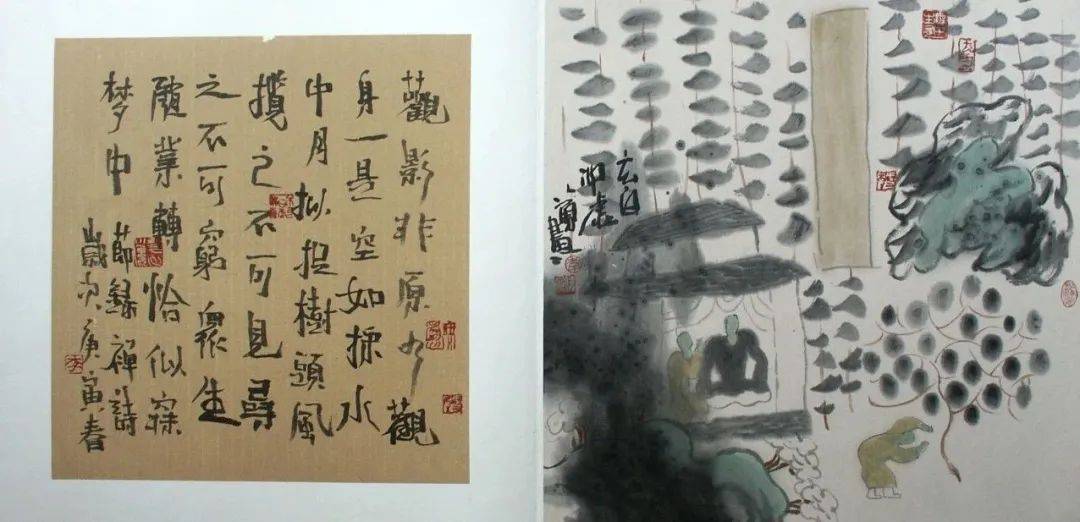 觀影非原有觀
身一是空如採水
中月拟捉樹頭風
攬之不可見尋
之不可窮眾生
隨業轉恰似寐
梦中
節録禪詩
歲次庚寅春